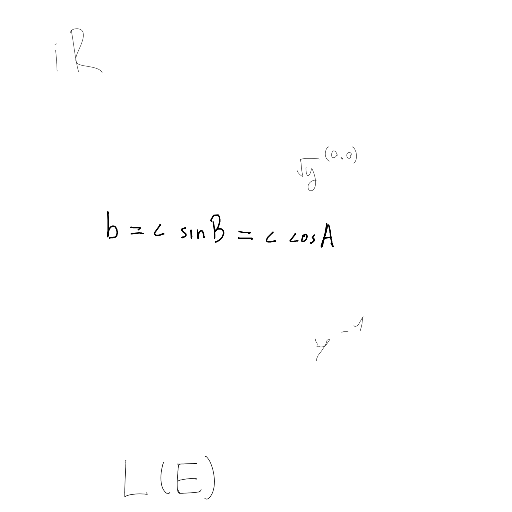 iR
√y^(0.0)
b = c sinB = c cosA
y^-1
L(E)